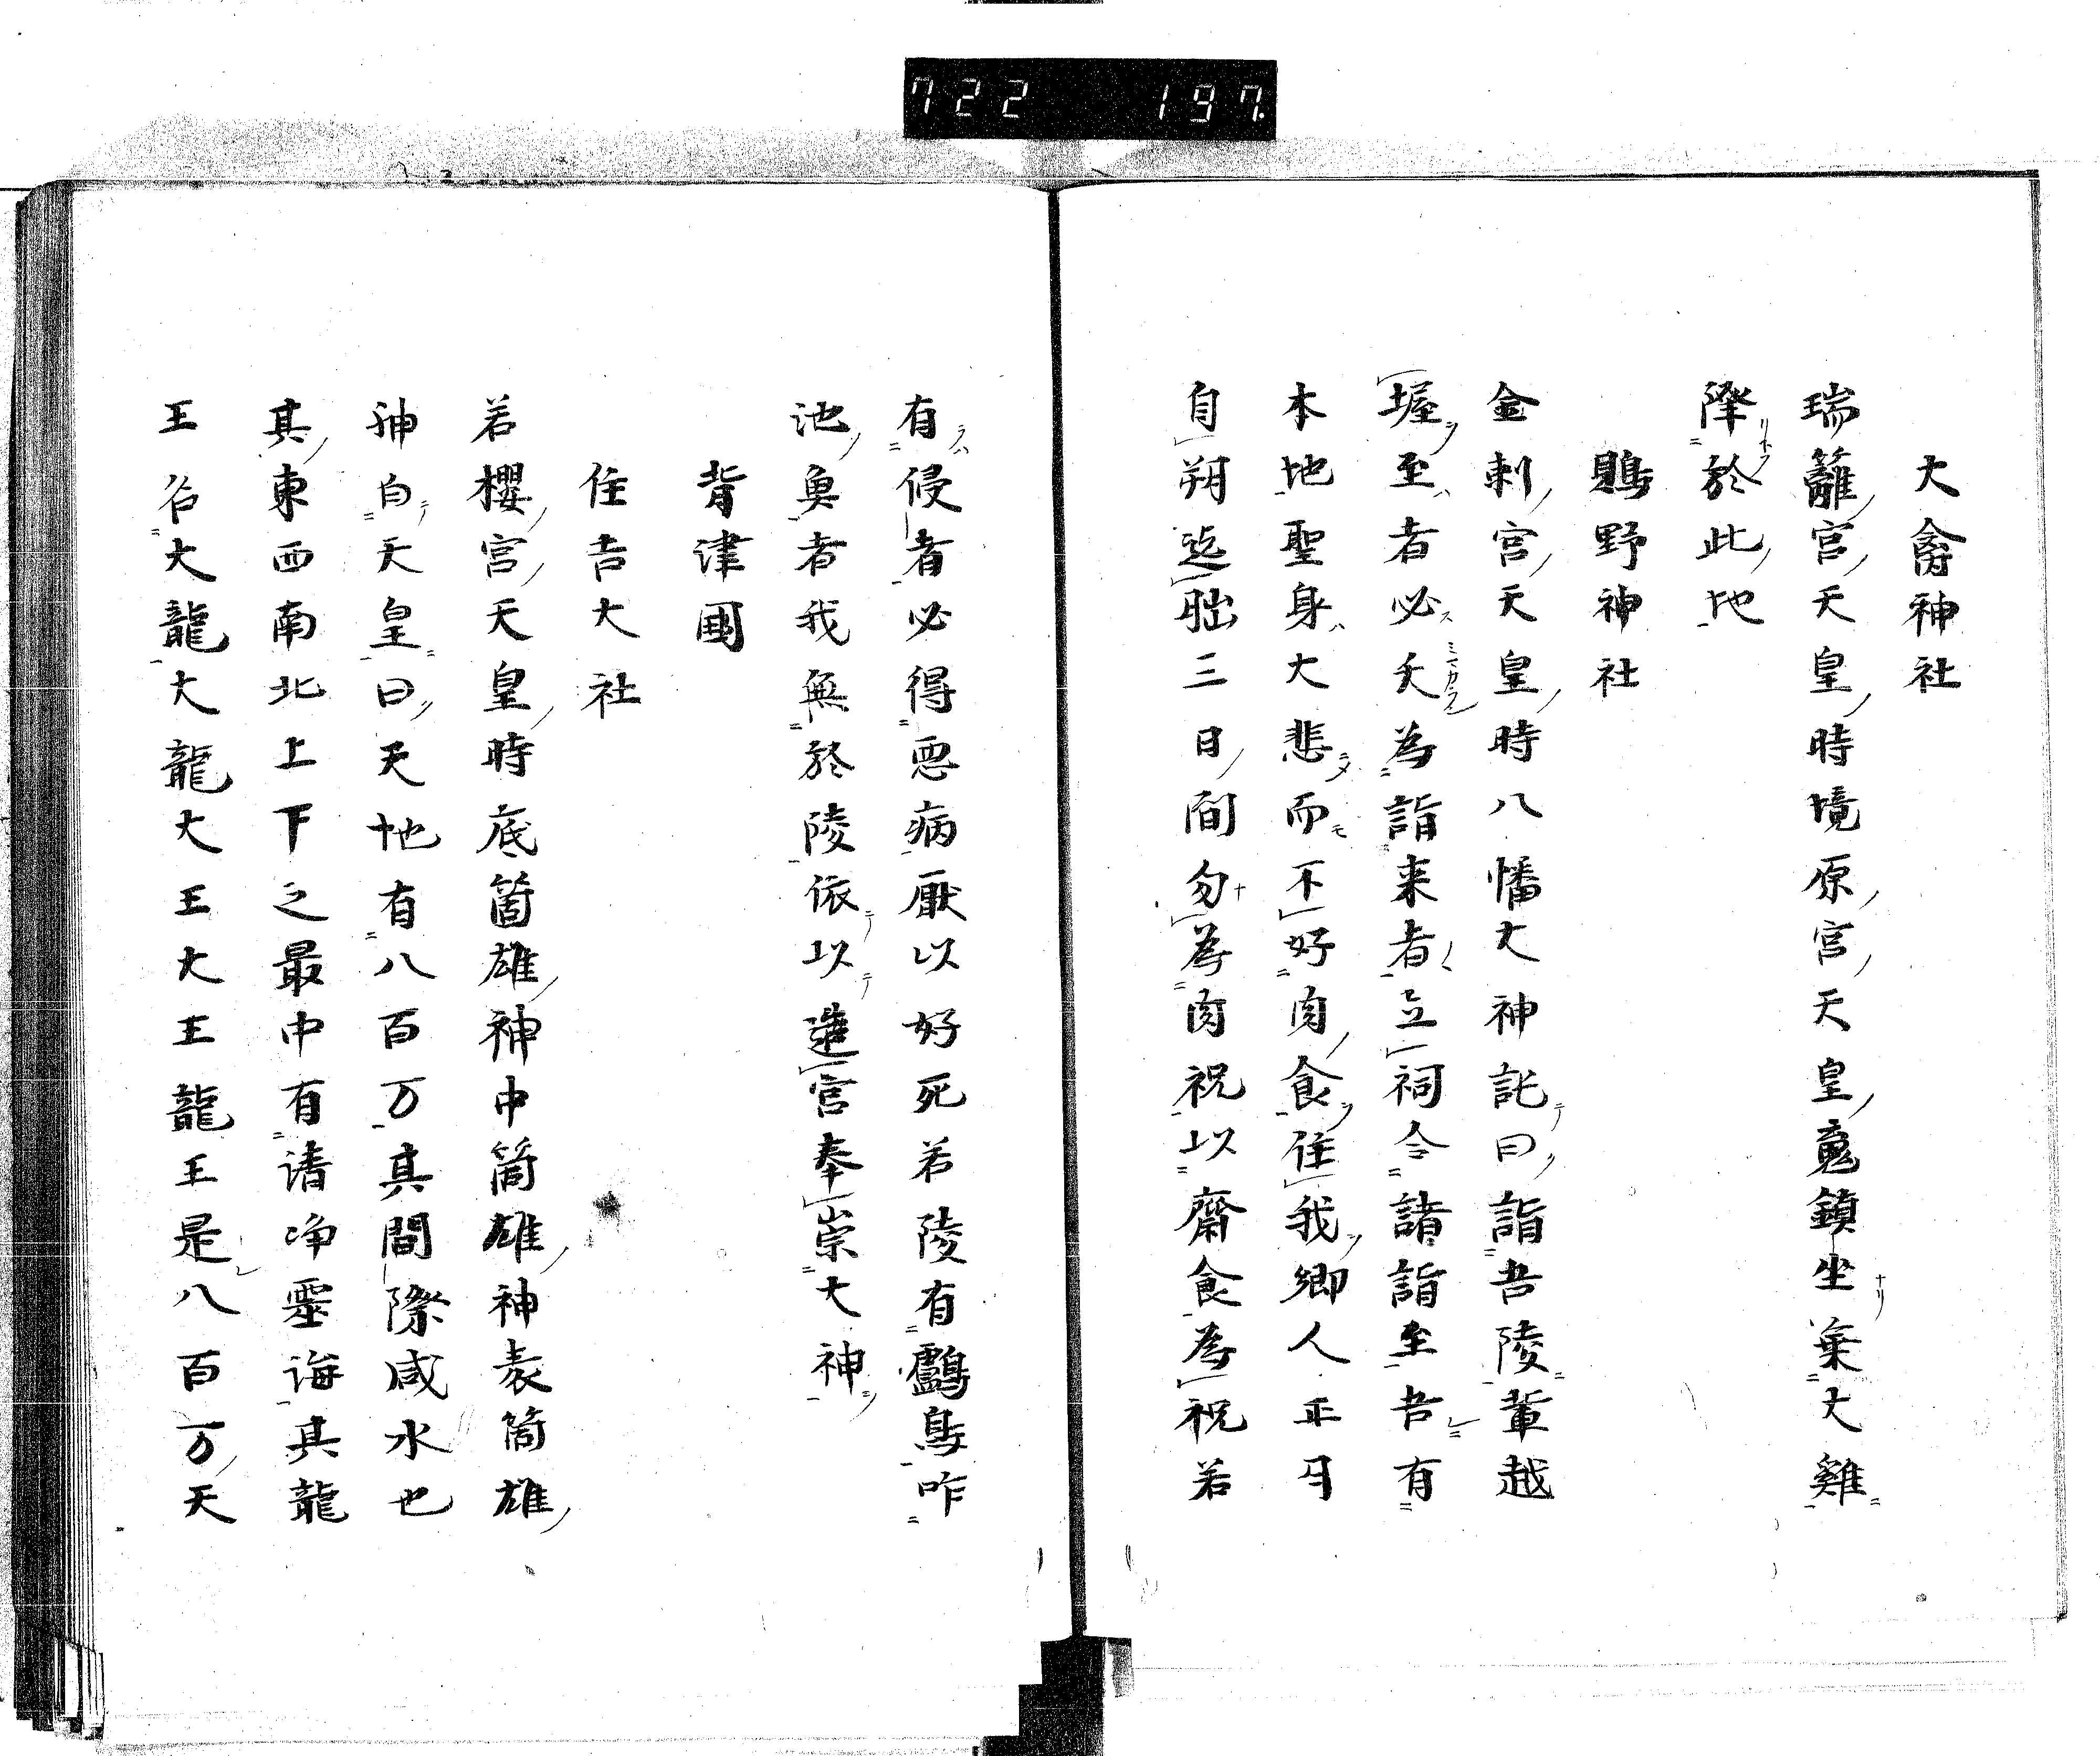 722 197.
大禽神社
瑞籬宮天皇時境原宮天皇魂鎮坐乗大雞
降於此地
鵙野神社
金刺宮天皇時八幡大神託曰詣吾陵葷越
堀至者必夭為詣来者立祠令諸詣至吾有
本地聖身大悲而不好肉食住我郷人正月
自朔迄朏三日間勿為肉祝以齋食為祝若
有侵者必得悪病厭以好死若陵有鸕鳥咋
池魚者我無於陵依以進宮奉崇大神
背津國
住吉大社
若櫻宮天皇時底箇雄神中筒雄神表筒雄
神白天皇曰天地有八百万其間際咸水也
其東西南北上下之最中有清浄霊海其龍
王名大龍大龍大王大王龍王是八百万天